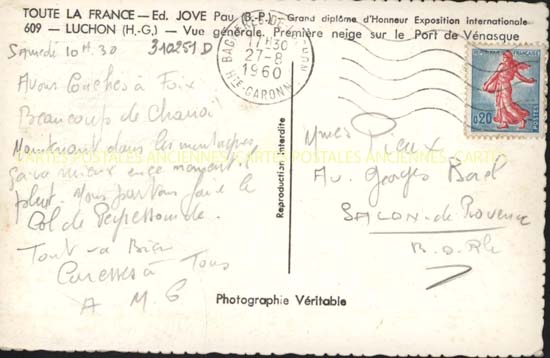 TOUTE LA FRANCE — Ed. JOVE Pau (B.-P.) Grand diplôme d'Honneur Exposition internationale
609 - LUCHON (H.-G.) - Vue générale. Première neige sur le Port de Vénasque
Samedi 10H.30
310251 D
BAGNERES-DE-LUCHON
17H30
27-8
1960
HTE-GARONNE
0,20
POSTES
Avons couchés à Foix
Beaucoup de
Maintenant dans les montagnes
ça va mieux en ce moment il
pleut. Nous partons faire le
Col de Peyresourde.
Tout va Bien
Caresses à Tous
A M G
Reproduction interdite
Av. Georges
SALON-de-Provence
B. d. Rh
CARTES POSTALES ANCIENNES
Photographie Véritable